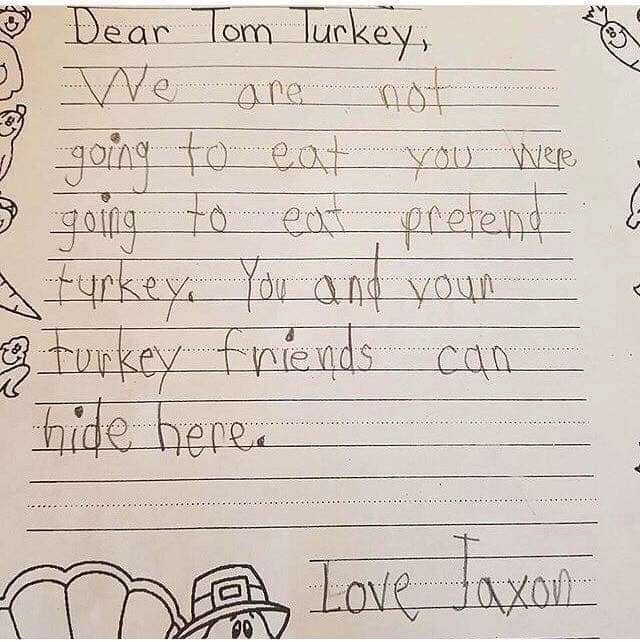 Dear Tom Turkey,
We are not
going to eat you were
going to eat pretend
turkey. You and your
turkey friends can
hide here.
Love Jaxon